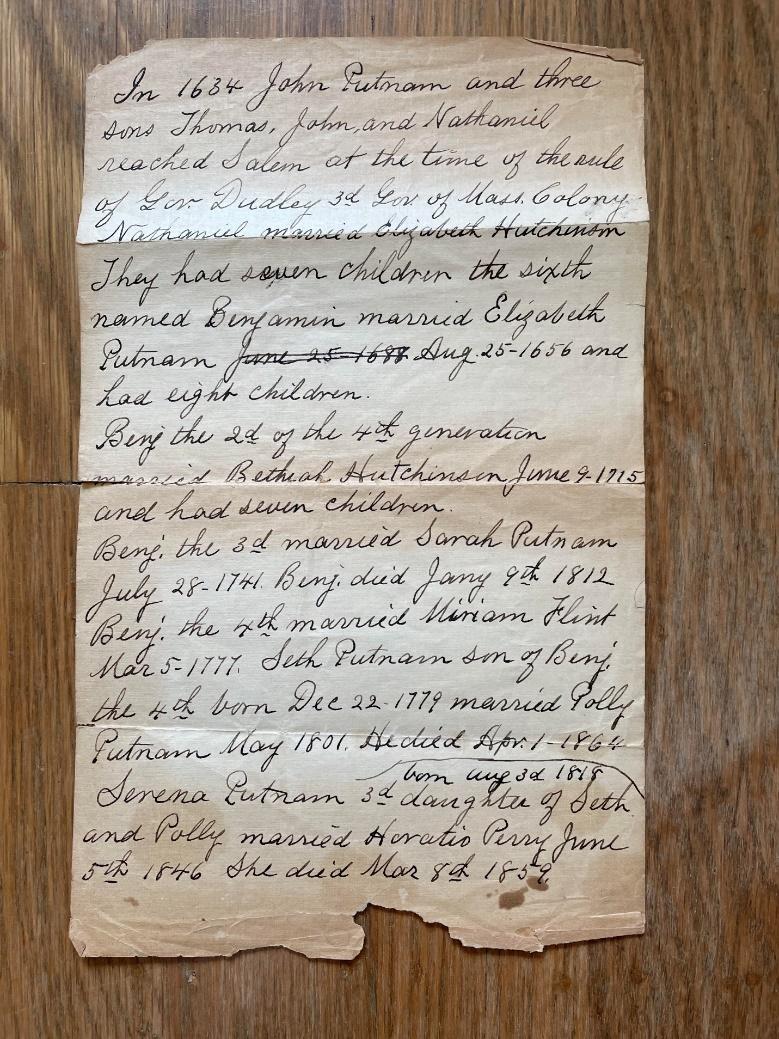 In 1634 John Putnam and three
sons Thomas, John, and Nathaniel
reached Salem at the time of the rule
of Gov. Dudley 3d Gov. of Mass. Colony.
Nathaniel married Elizabeth Hutchinson
They had seven children the sixth
named Benjamin married Elizabeth
Putnam June 25-1688 Aug. 25-1656 and
had eight children.
Benj the 2d of the 4th generation
married Bethiah Hutchinson June 9-1715
and had seven children.
Benj. the 3d married Sarah Putnam
July 28-1741. Benj. died Jany 9th 1812
Benj. the 4th married Miriam Flint
Mar 5-1777. Seth Putnam son of Benj.
the 4th born Dec 22-1779 married Polly
Putnam May 1801. He died Apr. 1-1864
born Aug 3d 1818
Serena Putnam 3d daughter of Seth
and Polly married Horatio Perry June
5th 1846 She died Mar 8th 1859.